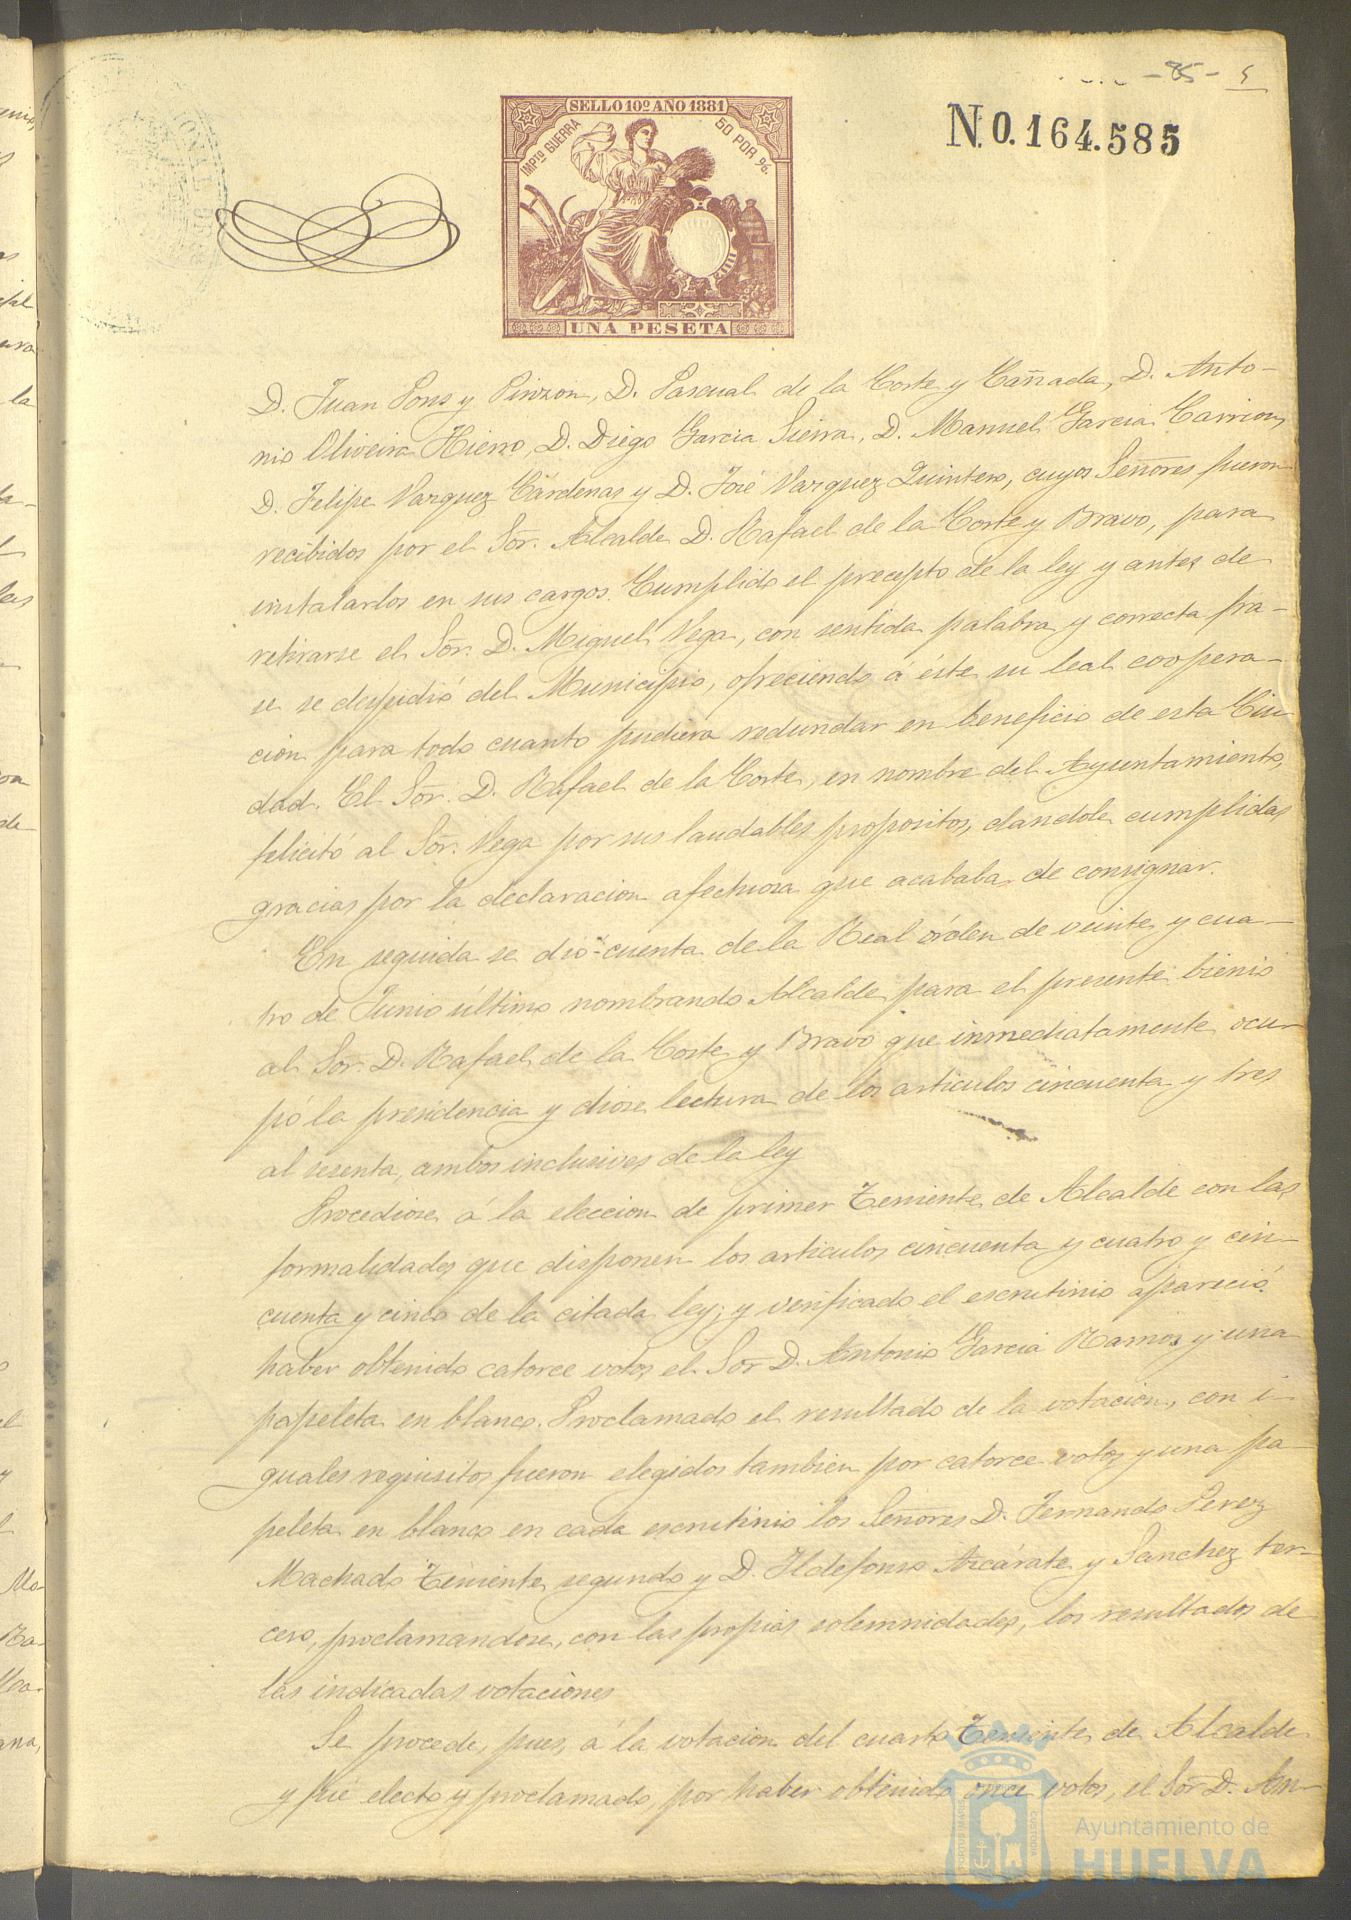 - 85 - 5
SELLO 10º AÑO 1881
IMPTO GUERRA
50 POR %.
UNA PESETA
N. 0.164.585
D. Juan Pons y Pinzon, D. Pascual de la Corte y Cañada, D. Anto-
nio Oliveira Hierro, D. Diego Garcia Sierra, D. Manuel Garcia Carrion,
D. Felipe Vazquez Cárdenas y D. José Vazquez Quintero, cuyos Señores fueron
recibidos por el Sór. Alcalde D. Rafael de la Corte y Bravo, para
instalarlos en sus cargos. Cumplido el precepto de la ley y antes de
retirarse el Sór. D. Miguel Vega, con sentida palabra y correcta fra-
se se despidió del Municipio, ofreciendo á éste su leal coopera-
cion para todo cuanto pudiera redundar en beneficio de esta Ciu-
dad. El Sór. D. Rafael de la Corte, en nombre del Ayuntamiento,
felicitó al Sór. Vega por sus laudables propositos, dandole cumplidas
gracias por la declaracion afectuosa que acababa de consignar.
En seguida se dió cuenta de la Real órden de veinte y cua-
tro de Junio último nombrando Alcalde para el presente bienio
al Sor. D. Rafael de la Corte y Bravo que inmediatamente ocu-
pó la presidencia y diose lectura de los articulos cincuenta y tres
al sesenta, ambos inclusives de la ley
Procediose á la eleccion de primer Teniente de Alcalde con las
formalidades que disponen los articulos cincuenta y cuatro y cin-
cuenta y cinco de la citada ley; y verificado el escrutinio apareció
haber obtenido catorce votos el Sor D. Antonio Garcia Ramos y una
papeleta en blanco. Proclamado el resultado de la votacion, con i-
guales requisitos fueron elegidos tambien por catorce votos y una pa-
peleta en blanco en cada escrutinio los Señores D. Fernando Perez
Machado Teniente segundo y D. Ildefonso Azcárate y Sanchez ter-
cero, proclamandose, con las propias solemnidades, los resultados de
las indicadas votaciones
Se procede, pues, á la votacion del cuarto Teniente de Alcalde
y fué electo y proclamado, por haber obtenido once votos, el Sor D. Am-
PORTUS MARIS
CUSTODIA
Ayuntamiento de
HUELVA